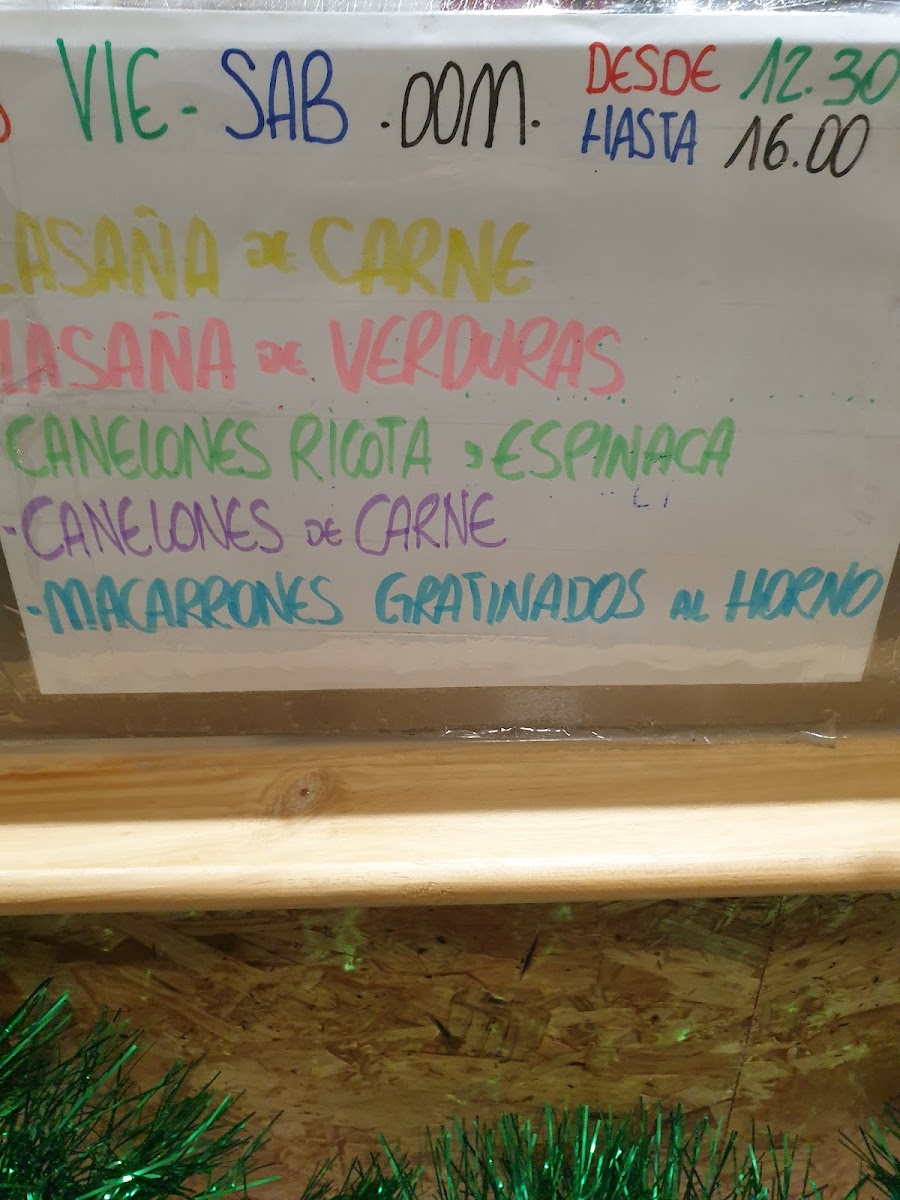 VIE - SAB . DOM. DESDE 12.30
HASTA 16.00
LASAÑA DE CARNE
LASAÑA DE VERDURAS
CANELONES RICOTA y ESPINACA
-CANELONES DE CARNE
-MACARRONES GRATINADOS AL HORNO